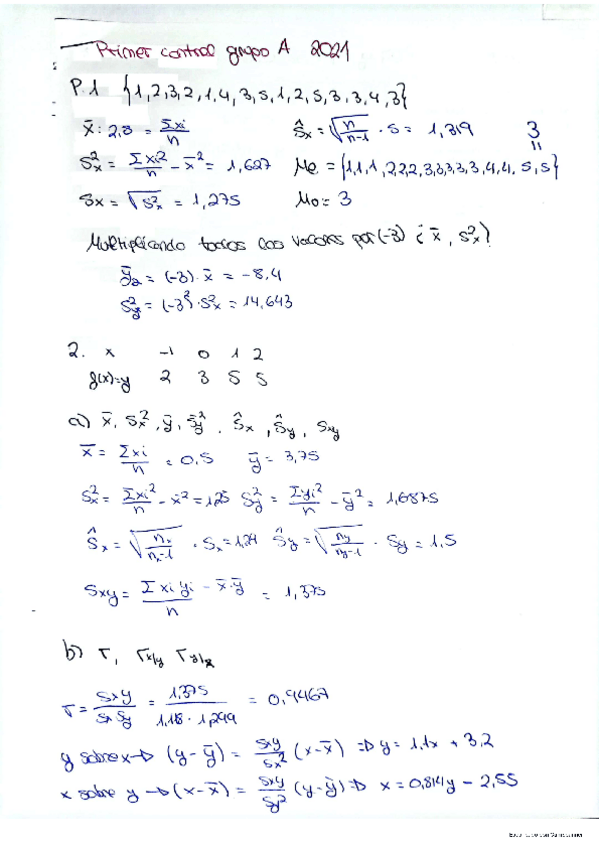 Primer control grupo A 2021
P.1 {1,2,3,2,1,4,3,5,1,2,5,3,3,4,3}
x̄: 2,8 = Σxi/n Ŝx = √(n/n-1) · S = 1,319 3
S²x = Σxi²/n - x̄² = 1,627 Me = {1,1,1,2,2,2,3,3,3,3,3,4,4,5,5}
Sx = √S²x = 1,275 Mo = 3
Multiplicando todos los valores por (-3) ¿ x̄, S²x?
ȳ2 = (-3) · x̄ = -8,4
S²y = (-3²) · S²x = 14,643
2. x -1 0 1 2
g(x)=y 2 3 5 5
a) x̄, Sx², ȳ, Sy², Ŝx, Ŝy, Sxy
x̄ = Σxi/n = 0,5 ȳ = 3,75
Sx² = Σxi²/n - x̄² = 1,25 Sy² = Σyi²/n - ȳ² = 1,6875
Ŝx = √(nx/nx-1) · Sx = 1,29 Ŝy = √(ny/ny-1) · Sy = 1,5
Sxy = Σxi yi/n - x̄·ȳ = 1,375
b) r, rx/y ry/x
r = Sxy/Sx Sy = 1,375/1,118 · 1,299 = 0,9467
y sobre x → (y-ȳ) = Sxy/Sx² (x-x̄) ⇒ y = 1,1x + 3,2
x sobre y → (x-x̄) = Sxy/Sy² (y-ȳ) ⇒ x = 0,814y - 2,55